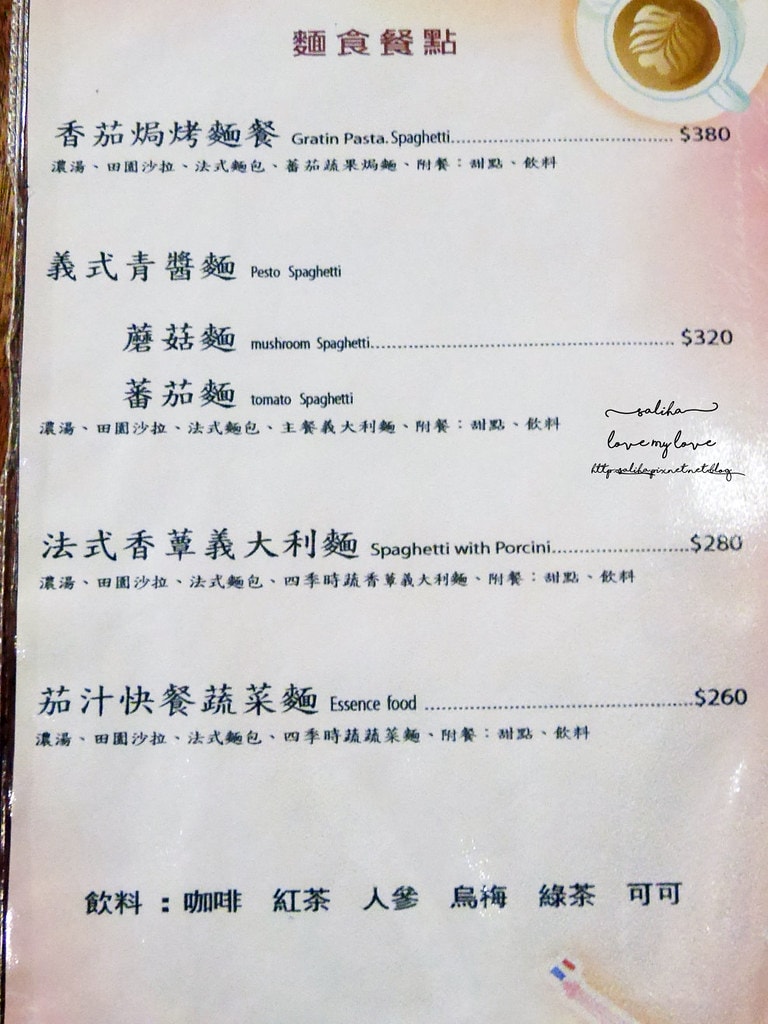 麵食餐點
香茄焗烤麵餐 Gratin Pasta.Spaghetti.......................................... $380
濃湯、田園沙拉、法式麵包、蕃茄蔬果焗麵、附餐：甜點、飲料
義式青醬麵 Pesto Spaghetti
蘑菇麵 mushroom Spaghetti.......................................................... $320
蕃茄麵 tomato Spaghetti
濃湯、田園沙拉、法式麵包、主餐義大利麵、附餐：甜點、飲料
saliha
love my love
http:saliha.pixnet.net.blog
法式香蕈義大利麵 Spaghetti with Porcini..........................$280
濃湯、田園沙拉、法式麵包、四季時蔬香蕈義大利麵、附餐：甜點、飲料
茄汁快餐蔬菜麵 Essence food ..................................................$260
濃湯、田園沙拉、法式麵包、四季時蔬蔬菜麵、附餐：甜點、飲料
飲料：咖啡 紅茶 人參 烏梅 綠茶 可可